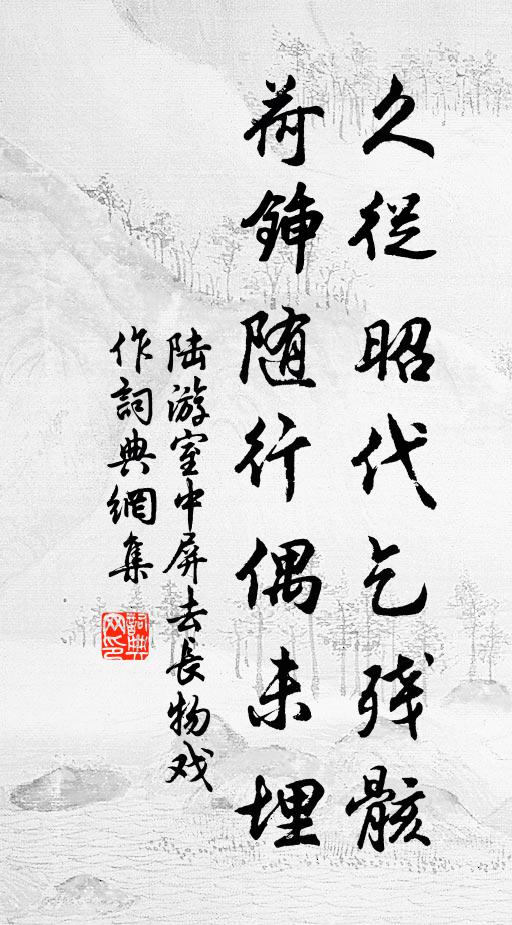 久從昭代乞残骸
荷鍤随行偶未埋
陆游室中屏去長物戏
作詞典網集